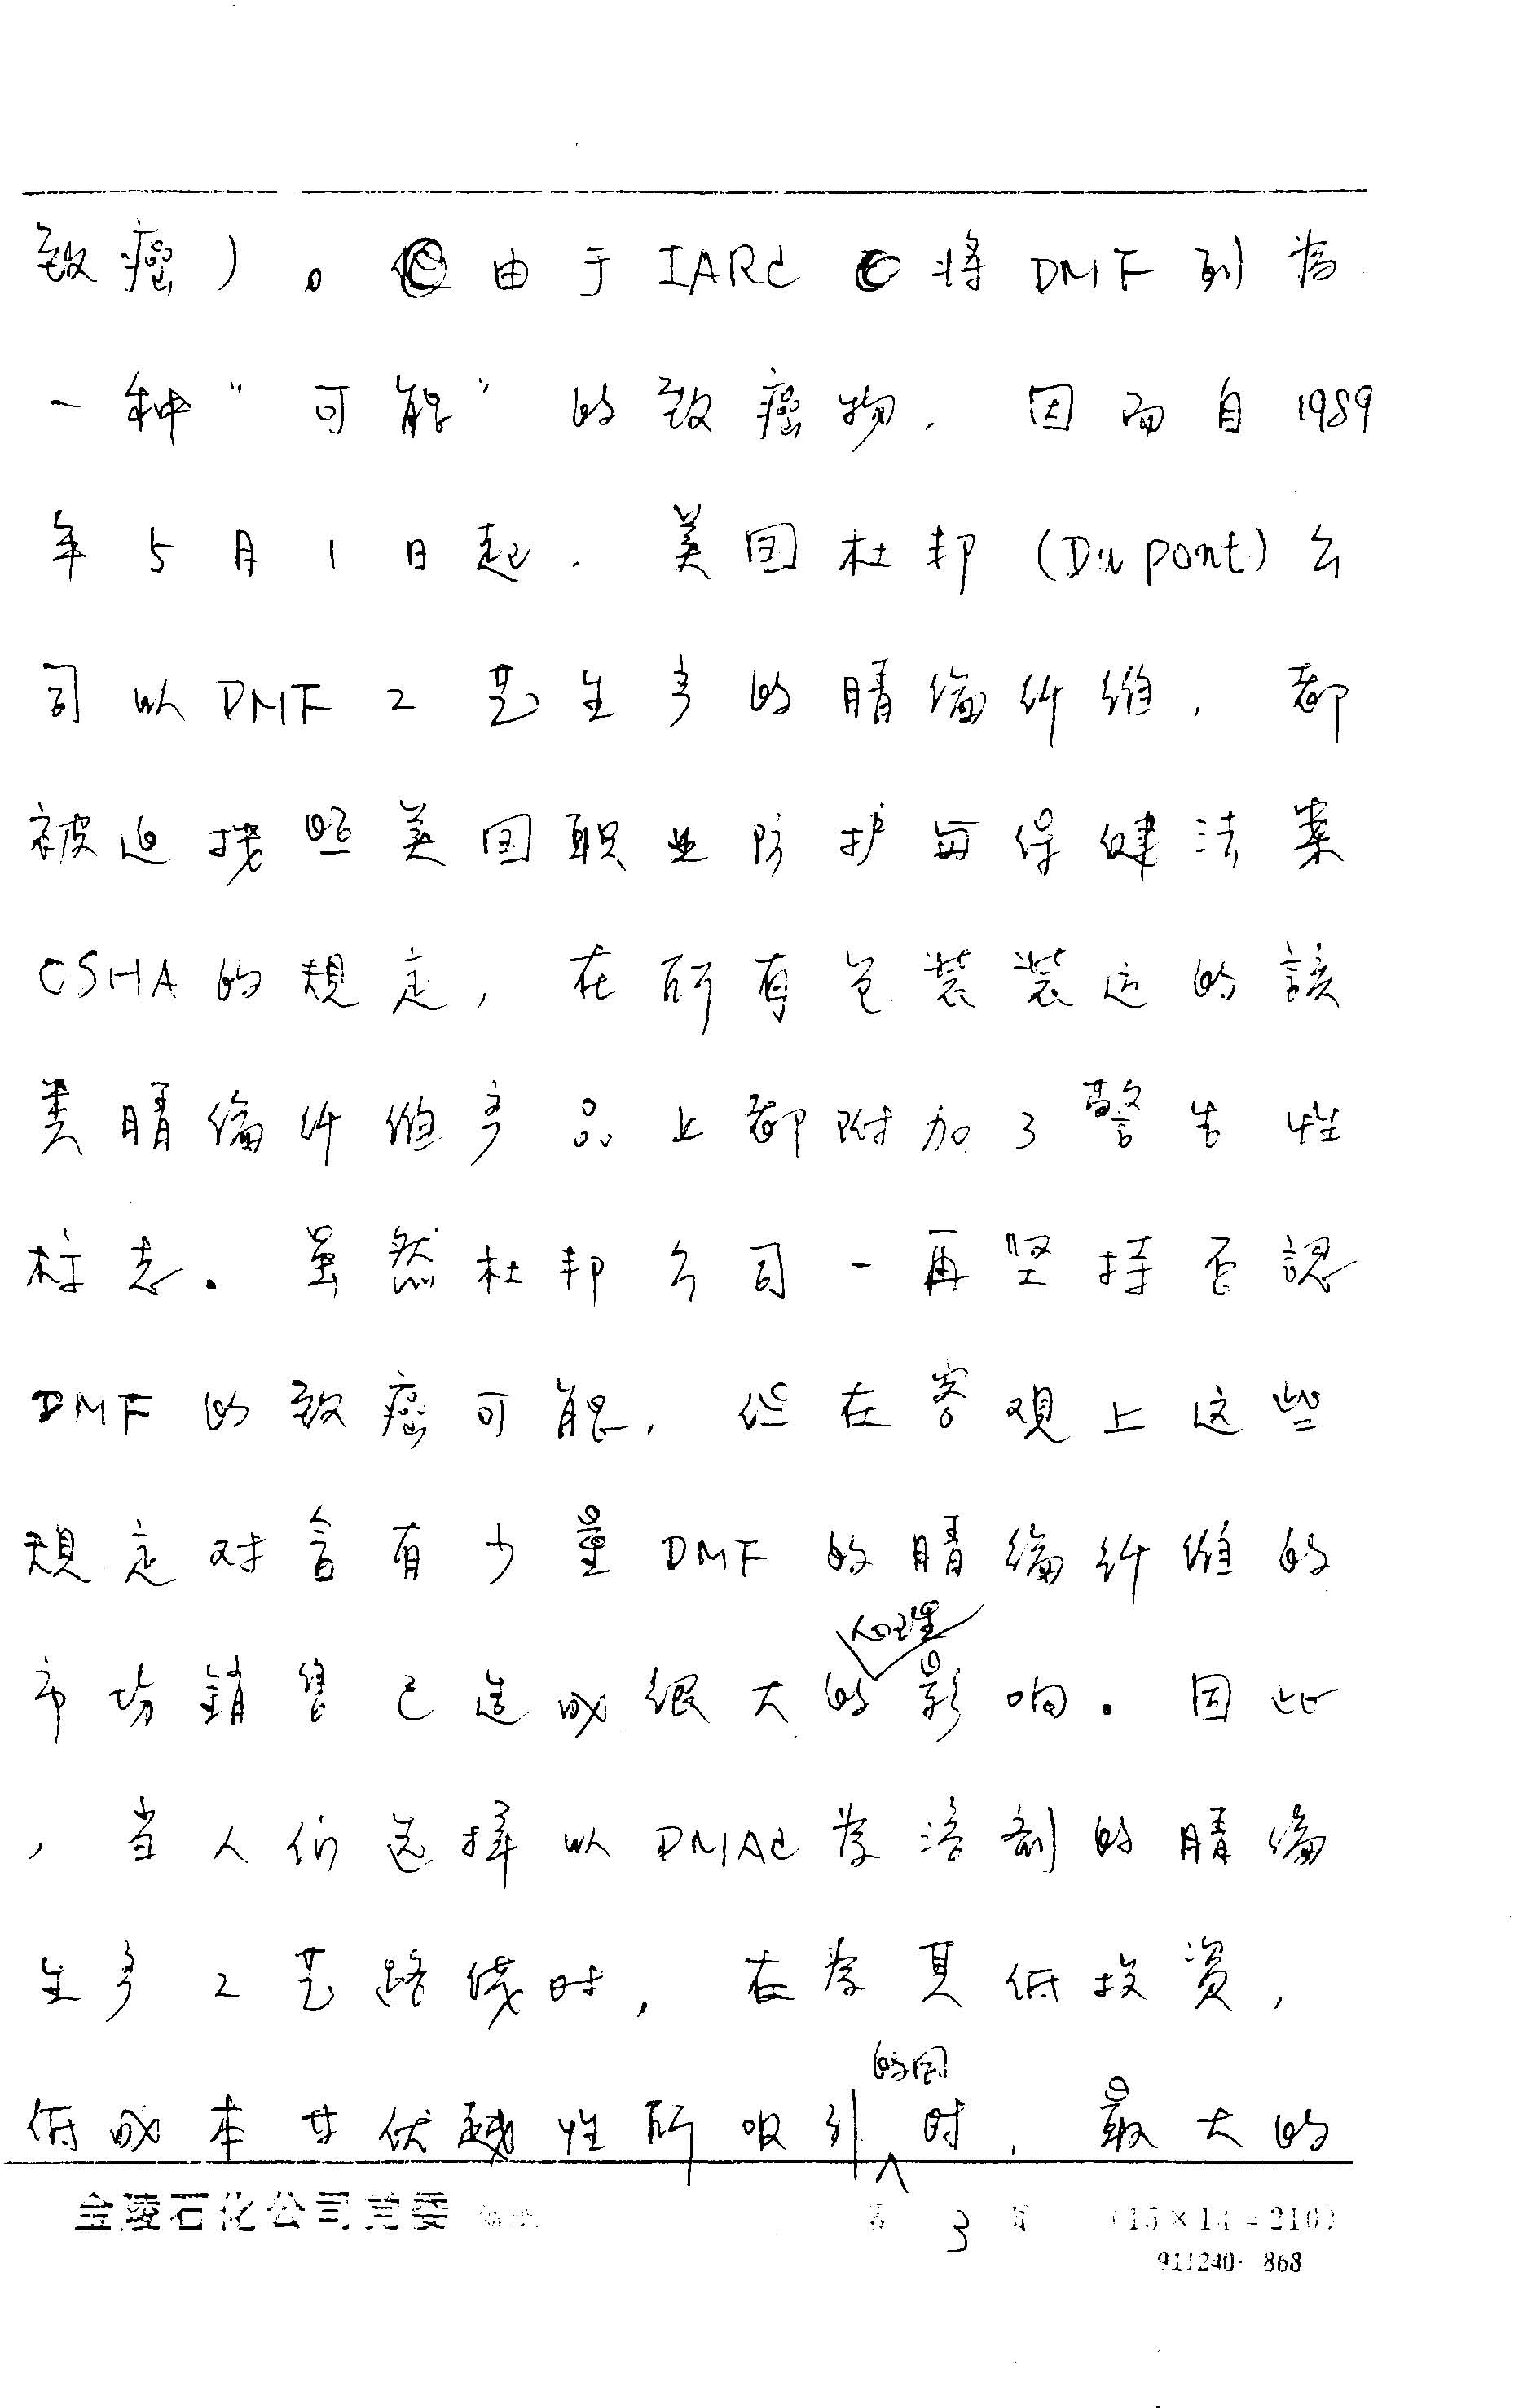 致癌）。但由于IARC 将DMF列為
一种“可能”的致癌物，因而自1989
年5月1日起，美国杜邦（Du pont）公
司以DMF工艺生产的腈纶纤维，都
被迫按照美国职业防护与保健法案
OSHA的規定，在所有包装装运的該
类腈纶纤维产品上都附加了警告性
标志。虽然杜邦公司一再坚持否認
DMF的致癌可能，但在客观上这些
規定对含有少量DMF的腈纶纤维的
心理
市场銷售已造成很大的影响。因此
，当人们选择以DMAC為溶剂的腈纶
生产工艺路线时，在為其低投資，
的同
低成本等优越性所吸引时，最大的
金陵石化公司党委
第 3 页 （15×14=210）
911240· 868